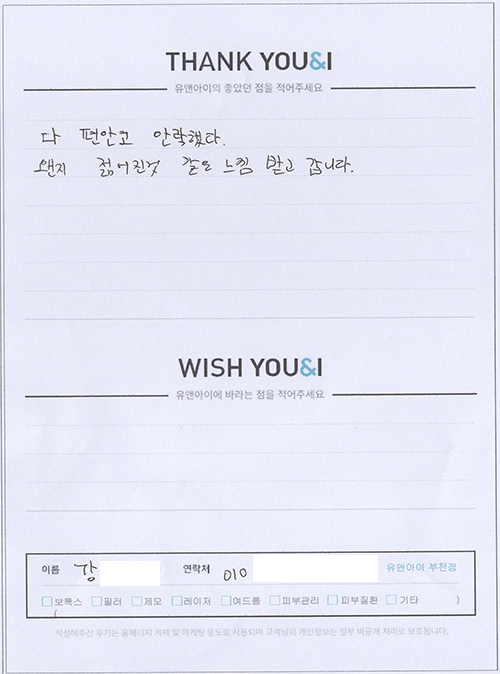 THANK YOU&I
유앤아이의 좋았던 점을 적어주세요
다 편안고 안락했다.
왠지 젊어진것 같은 느낌 받고 갑니다.
WISH YOU&I
유앤아이에 바라는 점을 적어주세요
이름 강 연락처 010 유앤아이 부천점
보톡스 필러 제모 레이저 여드름 피부관리 피부질환 기타 )
(
작성해주신 후기는 홈페이지 게재 및 마케팅 용도로 사용되며 고객님의 개인정보는 일부 비공개 처리로 보호됩니다.